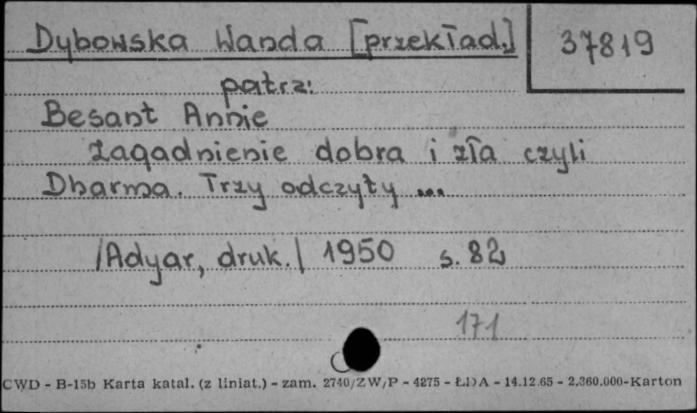 Dybowska Wanda [przekład.] 37819
patrz:
Besant Annie
Zagadnienie dobra i zła czyli
Dharma. Trzy odczyty ...
/Adyar, druk./ 1950 s. 82
171
CWD - B-15b Karta katal. (z liniat.) - zam. 2740/ZW/P - 4275 - ŁDA - 14.12.65 - 2.360.000-Karton